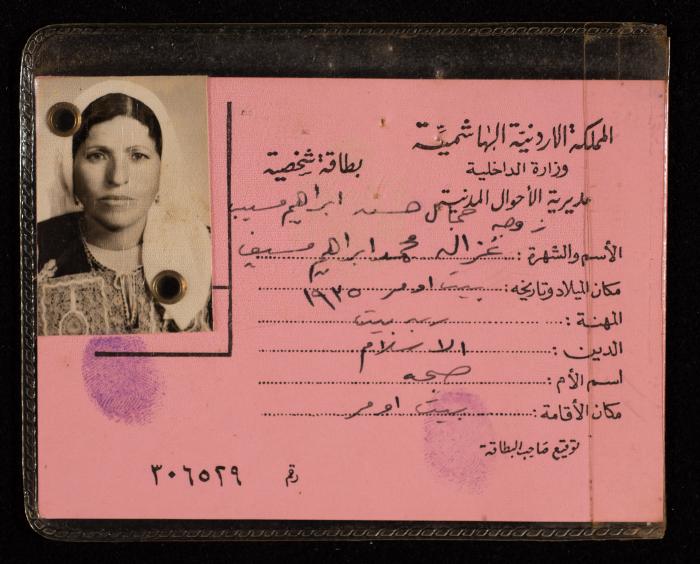 المملكة الاردنية الهاشمية
وزارة الداخلية
مديرية الأحوال المدنية
بطاقة شخصية
زوجة حسن ابراهيم
الأسم والشهرة: غزاله محمد ابراهيم
مكان الميلاد وتاريخه: بيت اومر ١٩٢٥
المهنة: ربة بيت
الدين: الاسلام
اسم الأم: صبحه
مكان الأقامة: بيت اومر
توقيع صاحب البطاقة
رقم ٣٠٦٥٢٩